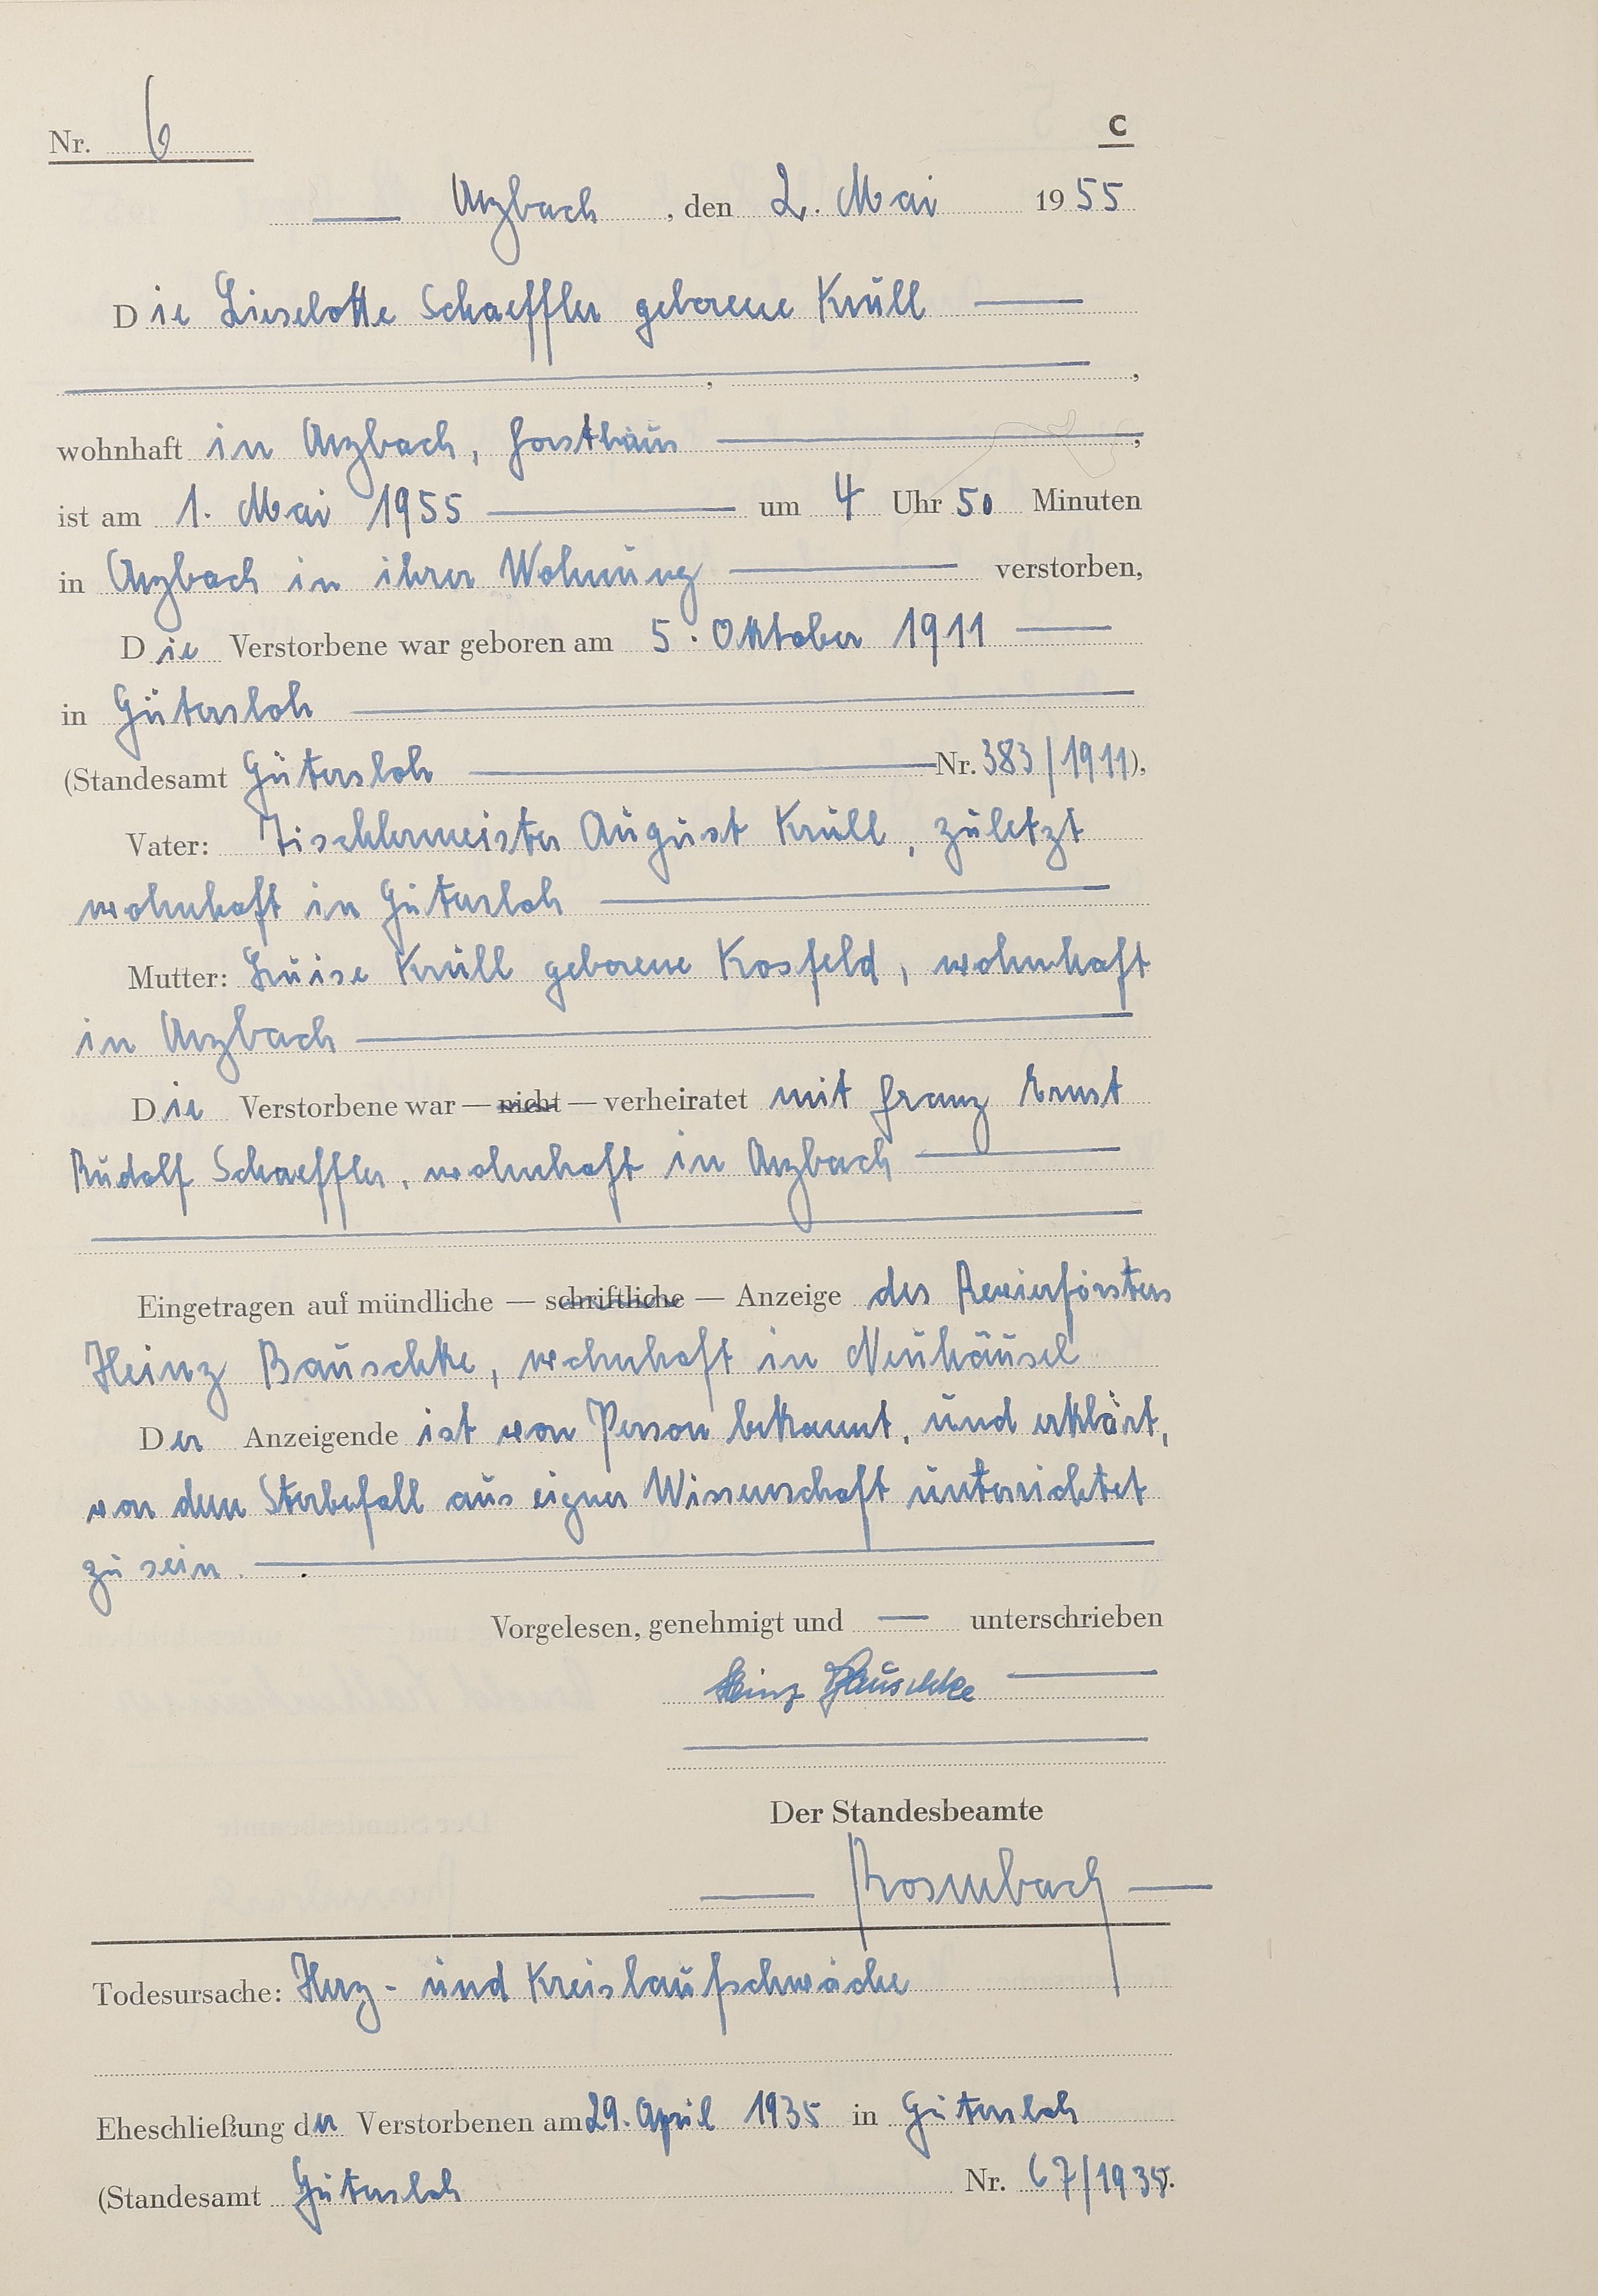 Nr. 6
C
Arzbach, den 2. Mai 1955
Die Lieselotte Schaeffler geborene Krull
, ,
wohnhaft in Arzbach, Forsthaus ,
ist am 1. Mai 1955 um 4 Uhr 50 Minuten
in Arzbach in ihrer Wohnung verstorben,
Die Verstorbene war geboren am 5. Oktober 1911
in Gütersloh
(Standesamt Gütersloh Nr. 383/1911).
Vater: Tischlermeister August Krull, zuletzt
wohnhaft in Gütersloh
Mutter: Luise Krull geborene Kosfeld, wohnhaft
in Arzbach
Die Verstorbene war — nicht — verheiratet mit Franz Ernst
Rudolf Schaeffler, wohnhaft in Arzbach
Eingetragen auf mündliche — schriftliche — Anzeige des Revierförsters
Heinz Bauschke, wohnhaft in Neuhäusel
Der Anzeigende ist von Person bekannt, und erklärt,
von dem Sterbefall aus eigner Wissenschaft unterrichtet
zu sein.
Vorgelesen, genehmigt und — unterschrieben
Heinz Bauschke
Der Standesbeamte
Rosenbach
Todesursache: Herz- und Kreislaufschwäche
Eheschließung der Verstorbenen am 29. April 1935 in Gütersloh
(Standesamt Gütersloh Nr. 67/1935).